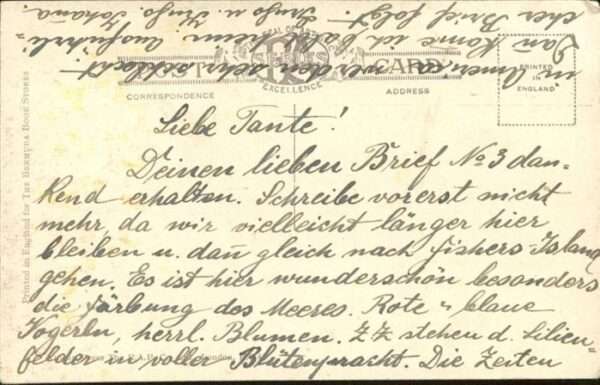 Liebe Tante!
Deinen lieben Brief No 3 dan-
kend erhalten. Schreibe vorerst nicht
mehr, da wir vielleicht länger hier
bleiben u. dañ gleich nach Fishers-Island
gehen. Es ist hier wunderschön besonders
die Färbung des Meeres. Rote u blaue
Vogerln, herrl. Blumen. ZZ stehen d. Lilien-
felder in voller Blütenpracht. Die Zeiten
in schlecht. –
Dan kome ich bald heim. Ausführli-
cher Brief folgt. – u. Johana.
POST CARD
EXCELLENCE
CORRESPONDENCE
ADDRESS
PRINTED
IN
ENGLAND
Printed in England for THE BERMUDA BOOK STORES